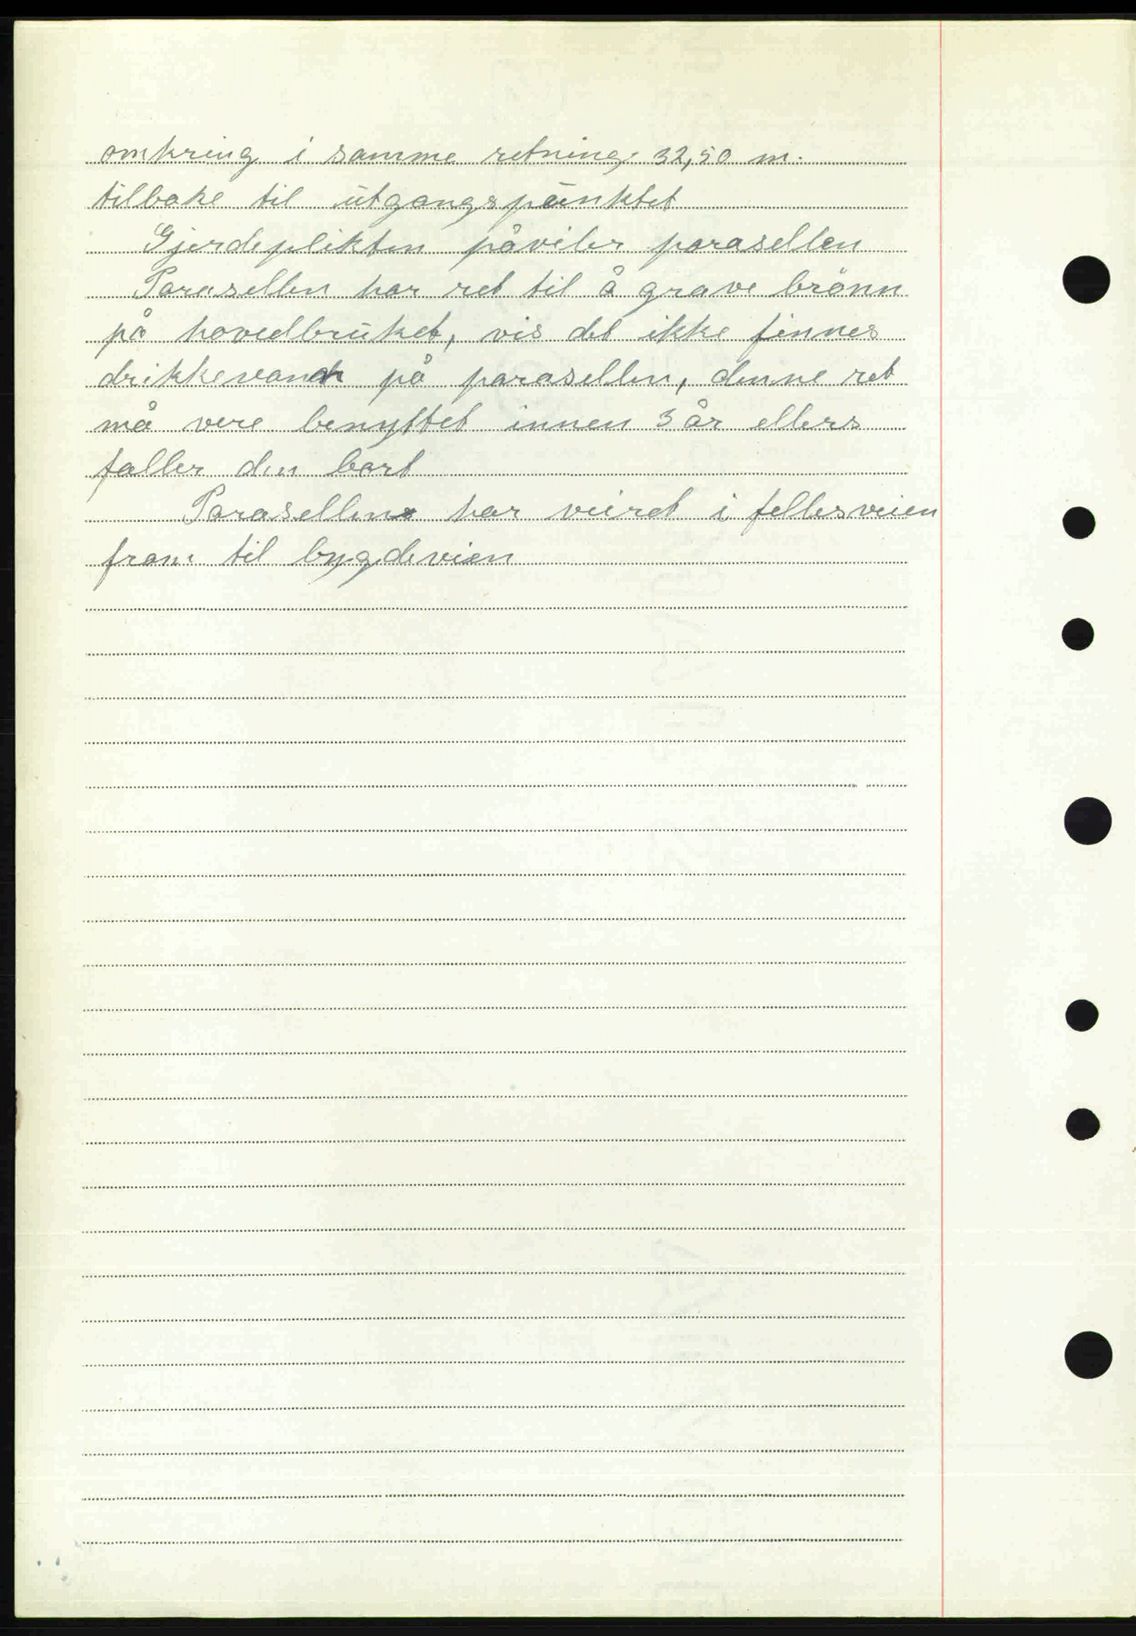 omkring i samme retning 32,50 m.
tilbake til utgangspunktet
Gjerdeplikten påviler parasellen
Parasellen har ret til å grave brönn
på hovedbruket, vis det ikke finnes
drikkevand på parasellen, denne ret
må vere benyttet innen 3 år ellers
faller den bort
Parasellen har veiret i fellesveien
fram til bygdeveien